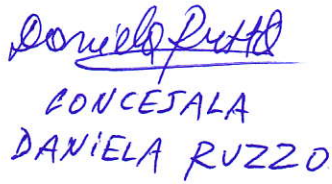 Daniela Ruzzo
CONCEJALA
DANIELA RUZZO